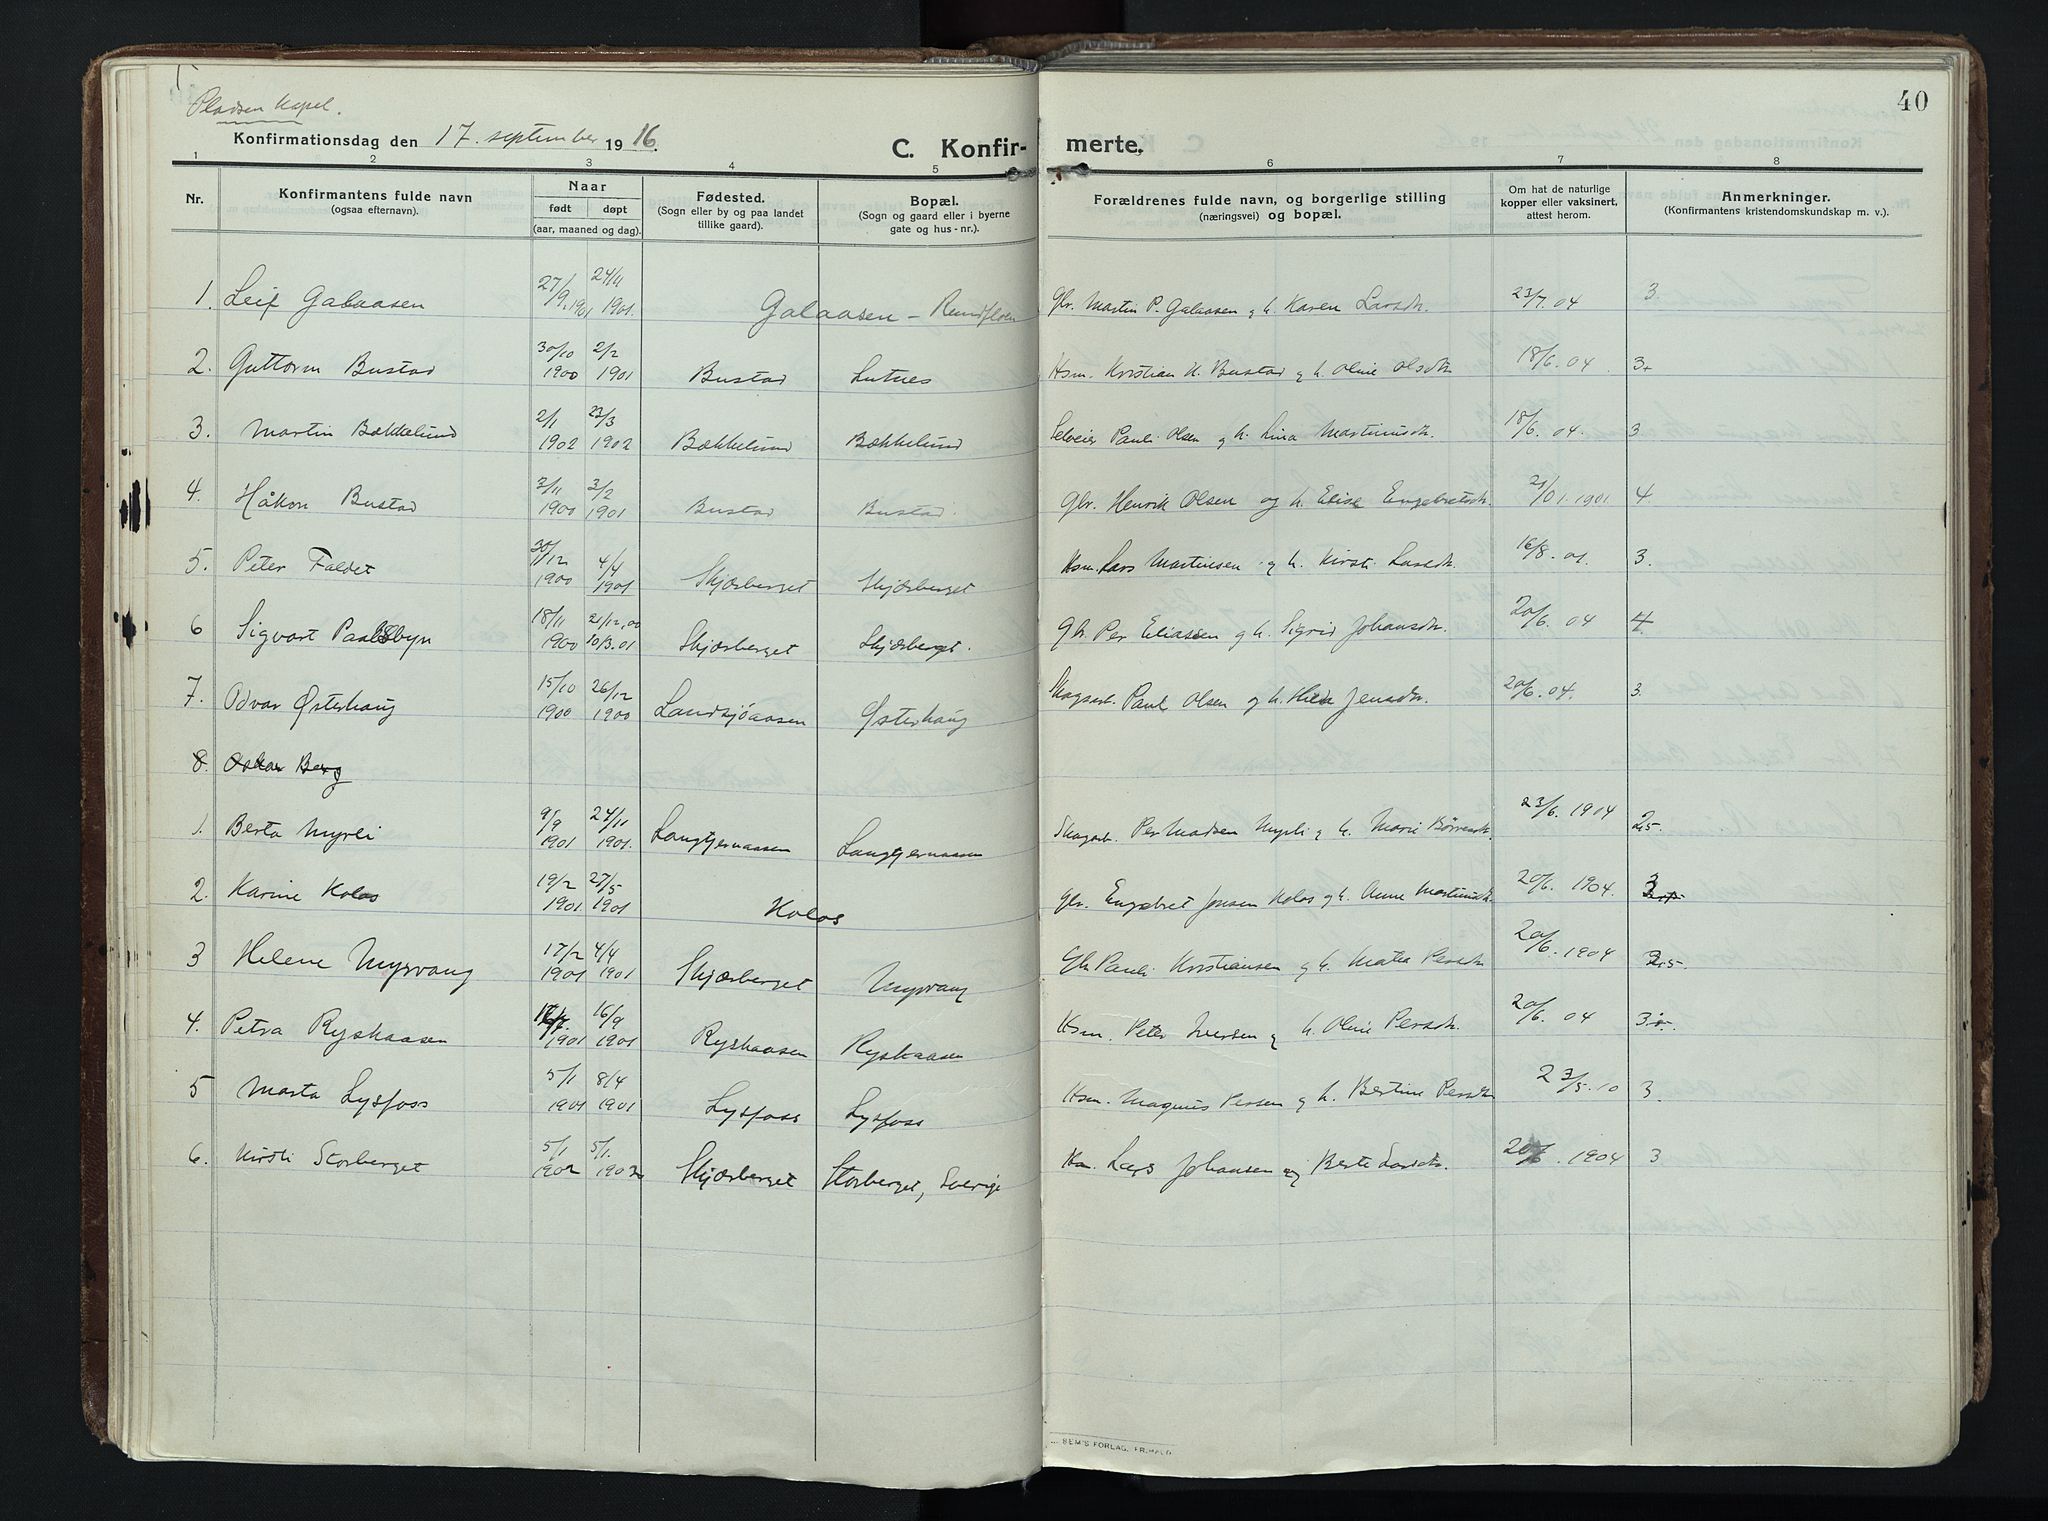 40
Pladsen Kapel.
Konfirmationsdag den 17. september 1916.
C. Konfirmerte.
1 2 3 4 5 6 7 8
Nr. Konfirmantens fulde navn (ogsaa efternavn). Naar født døpt (aar, maaned og dag). Fødested. (Sogn eller by og paa landet tillike gaard). Bopæl. (Sogn og gaard eller i byerne gate og hus-nr.). Forældrenes fulde navn, og borgerlige stilling (næringsvei) og bopæl. Om hat de naturlige kopper eller vaksinert, attest herom. Anmerkninger. (Konfirmantens kristendomskundskap m. v.).
1. Leif Galaasen 27/9 1901 24/11 1901. Galaasen – Rundfloen Gbr. Martin P. Galaasen og h. Karen Larsdtr. 23/7.04 3.
2. Guttorm Bustad 30/10 1900 2/2 1901 Bustad Lutnes Hsm. Kristian H. Bustad og h. Oline Olsdtr. 18/6.04 3+
3. Martin Bækkelund 2/1 1902 23/3 1902 Bækkelund Bækkelund Selveier Paul Olsen og h. Lina Martinusdtr. 18/6.04. 3
4. Håkon Bustad 3/11 1900 3/2 1901 Bustad Bustad. Gbr. Henrik Olsen og h. Elise Engebretsdtr. 21/01.1901 4.
5. Peter Faldet 30/12 1900 4/4 1901 Skjærberget Skjærberget Hsm. Lars Martinsen og h. Kirsti Larsdtr. 16/8.01. 3.
6 Sigvart Paalsbyn 18/11 1900 21/12.00 10/3.01 Skjærberget Skjærberget. Gbr. Per Eliassen og h. Sigrid Johansdtr. 20/6.04 4.
7. Odvar Østerhaug 15/10 1900 26/12 1900 Landsjøaasen Østerhaug Skogsarb. Paul Olsen og h. Hilda Jensdtr. 20/6.04. 3.
8. Oskar Berg
1. Berta Myrli 9/9 1901 24/11 1901. Langtjernaasen Langtjernaasen Skogarb. Per Madsen Myrli og h. Marie Børresdtr. 23/6.1904 2,5.
2. Karine Kolos 19/2 1901 27/5 1901 Kolos Gbr. Engebret Jonsen Kolos og h. Anne Martinusdtr. 20/6.1904. 3
3 Helene Nysvang 17/2 1901 4/4 1901 Skjærberget Nysvang Gbr. Paul Kristiansen og h. Matea Persdtr. 20/6.1904 2,5.
4. Petra Ryskaasen 1901 16/9 1901 Ryskaasen Ryskaasen Hsm. Peter Iversen og h. Oline Persdtr. 20/6.04 3
5 Marta Lysfoss 5/1 1901 8/4 1901 Lysfoss Lysfoss Hsm. Magnus Persen og h. Bertine Persdtr 23/5.10 3.
6. Kirsti Storberget 5/1 1902 5/1. 1902 Skjærberget Storberget, Sverige Hsm. Lars Johansen og Berte Larsdtr. 20/6.1904 3
SEM'S FORLAG, FR.HALD